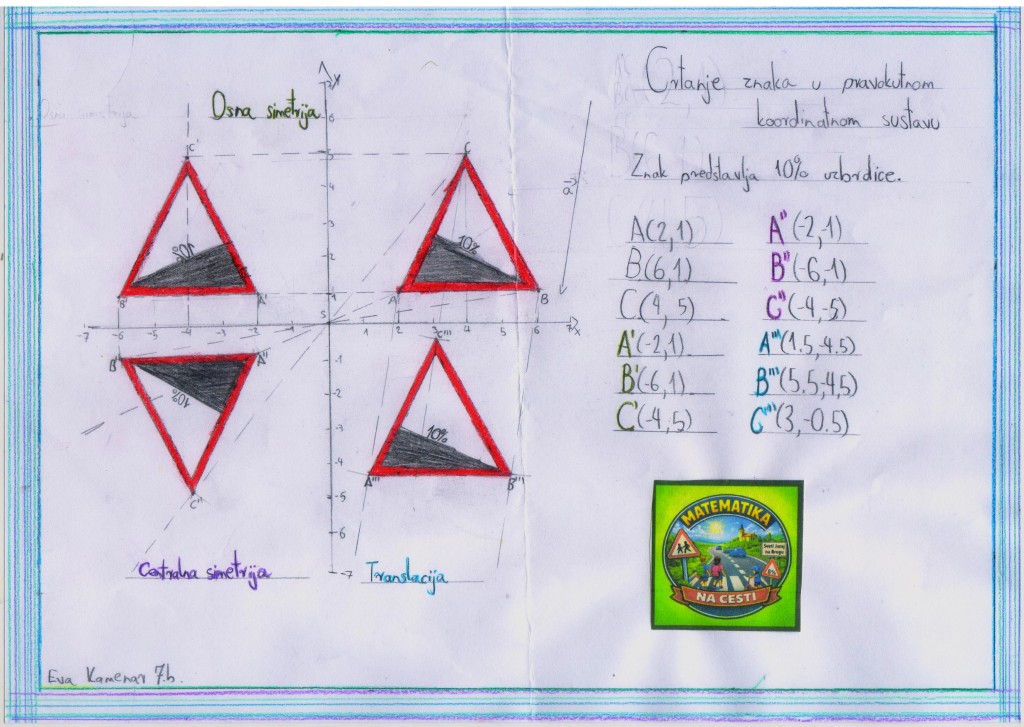 Crtanje znaka u pravokutnom
koordinatnom sustavu
Znak predstavlja 10% uzbrdice.
A(2,1)
B(6,1)
C(4,5)
A'(-2,1)
B'(-6,1)
C'(-4,5)
A''(-2,-1)
B''(-6,-1)
C''(-4,-5)
A'''(1.5,-4.5)
B'''(5.5,-4,5)
C'''(3,-0.5)
Osna simetrija
Osna simetrija
y
6
5
4
3
2
1
S
-1
-2
-3
-4
-5
-6
-7
-7 -6 -5 -4 -3 -2 -1 1 2 3 4 5 6 7 x
C'
10%
B' A'
C
10%
A B
a
B'' A''
10%
C''
C'''
10%
A''' B'''
Centralna simetrija
Translacija
MATEMATIKA
Sveti Juraj
na Bregu
NA CESTI
Eva Kamenar 7.b.